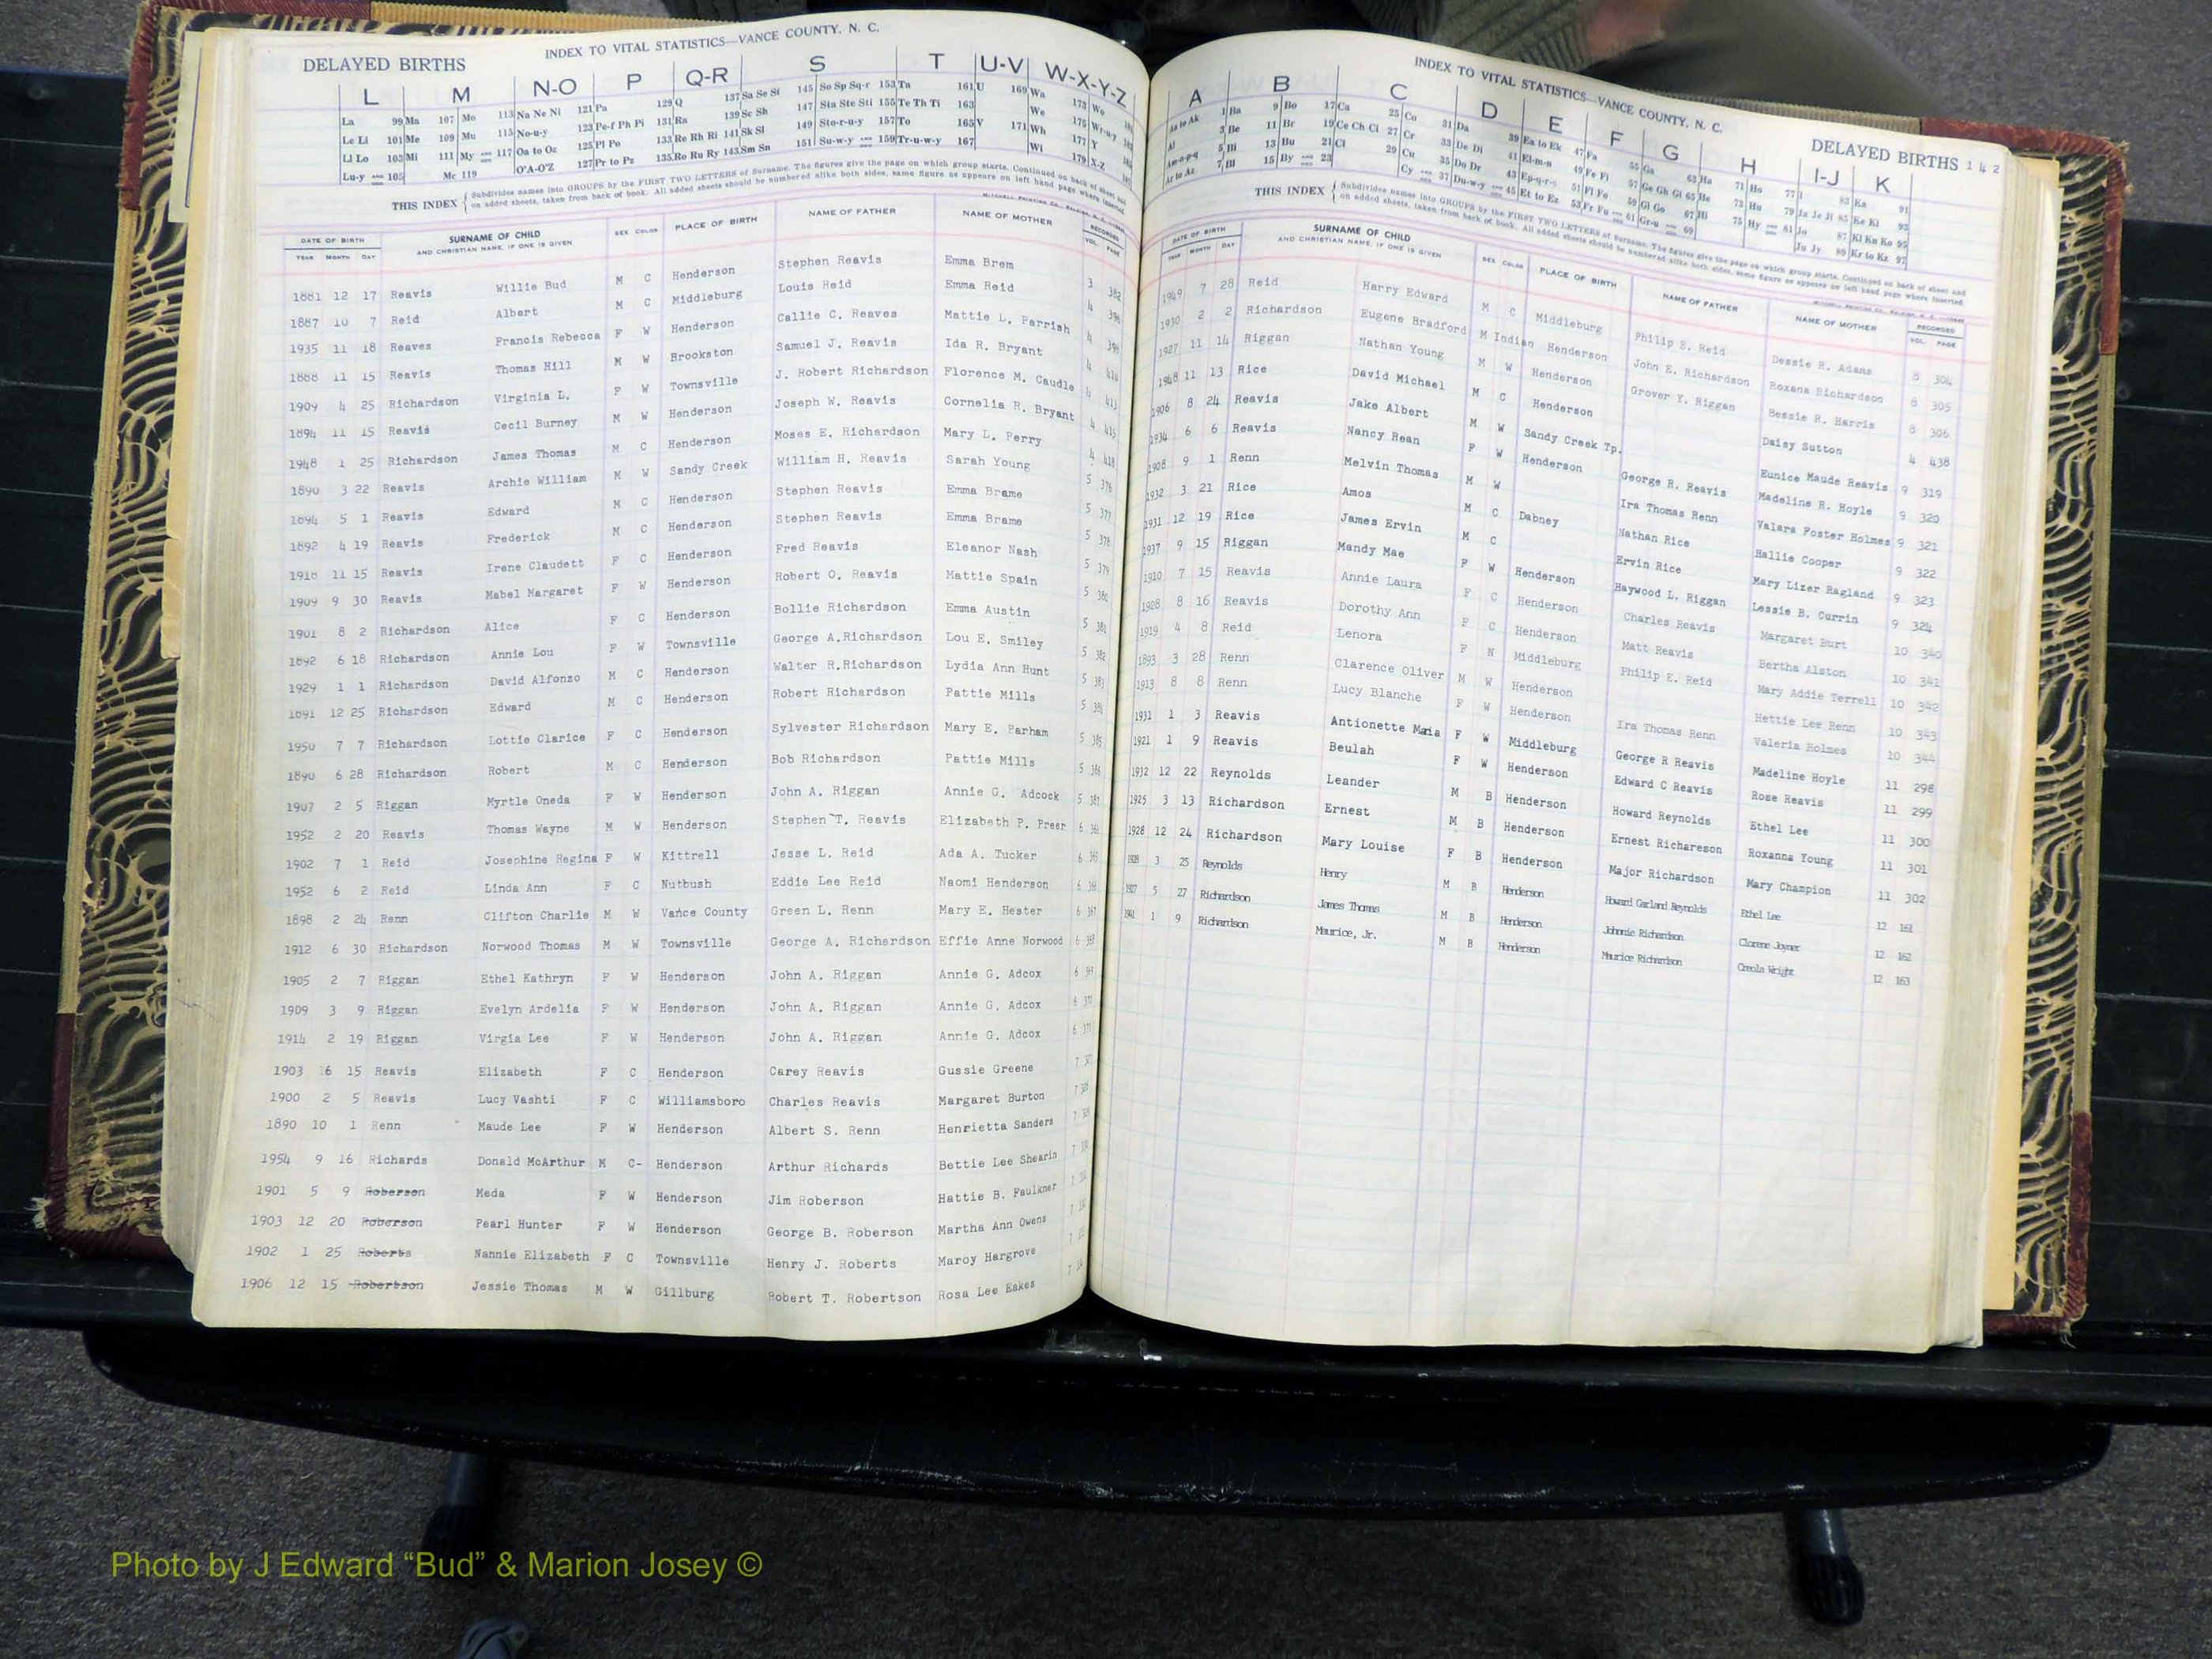 INDEX TO VITAL STATISTICS—VANCE COUNTY, N. C.
DELAYED BIRTHS
L M N-O P Q-R S T U-V W-X-Y-Z
La 99 Ma 107 Mo 113 Na Ne Ni 121 Pa 129 Q 137 Sa Se Si 145 So Sp Sq-r 153 Ta 161 U 169 Wa 173 Wo
Le Li 101 Me 109 Mu 115 No-u-y 123 Pe-f Ph Pi 131 Ra 139 Sc Sh 147 Sta Ste Sti 155 Te Th Ti 163 We 175 Wr-u-y
Ll Lo 103 Mi 111 My AND 117 Oa to Oz 125 Pl Po 133 Re Rh Ri 141 Sk Sl 149 Sto-r-u-y 157 To 165 V 171 Wh 177 Y
Lu-y AND 105 Mc 119 O'A-O'Z 127 Pr to Pz 135 Ro Ru Ry 143 Sm Sn 151 Su-w-y AND 159 Tr-u-w-y 167 Wi 179 X-Z
THIS INDEX { Subdivides names into GROUPS by the FIRST TWO LETTERS of Surname. The figures give the page on which group starts. Continued on back of sheet and
on added sheets, taken from back of book. All added sheets should be numbered alike both sides, same figure as appears on left hand page where inserted.
DATE OF BIRTH SURNAME OF CHILD SEX COLOR PLACE OF BIRTH NAME OF FATHER NAME OF MOTHER RECORDED
YEAR MONTH DAY AND CHRISTIAN NAME, IF ONE IS GIVEN VOL. PAGE
1881 12 17 Reavis Willie Bud M C Henderson Stephen Reavis Emma Brem 3 382
1887 10 7 Reid Albert M C Middleburg Louis Reid Emma Reid 4
1935 11 18 Reaves Francis Rebecca F W Henderson Callie C. Reaves Mattie L. Parrish 4
1888 11 15 Reavis Thomas Hill M W Brookston Samuel J. Reavis Ida R. Bryant 4
1909 4 25 Richardson Virginia L. F W Townsville J. Robert Richardson Florence M. Caudle 4 413
1894 11 15 Reavis Cecil Burney M W Henderson Joseph W. Reavis Cornelia R. Bryant 4 415
1948 1 25 Richardson James Thomas M C Henderson Moses E. Richardson Mary L. Perry 4 418
1890 3 22 Reavis Archie William M W Sandy Creek William H. Reavis Sarah Young 5 376
1894 5 1 Reavis Edward M C Henderson Stephen Reavis Emma Brame 5 377
1892 4 19 Reavis Frederick M C Henderson Stephen Reavis Emma Brame 5 378
1918 11 15 Reavis Irene Claudett F C Henderson Fred Reavis Eleanor Nash 5 379
1909 9 30 Reavis Mabel Margaret F W Henderson Robert O. Reavis Mattie Spain 5 380
1901 8 2 Richardson Alice F C Henderson Bollie Richardson Emma Austin 5 381
1892 6 18 Richardson Annie Lou F W Townsville George A.Richardson Lou E. Smiley 5 382
1929 1 1 Richardson David Alfonzo M C Henderson Walter R.Richardson Lydia Ann Hunt 5 383
1891 12 25 Richardson Edward M C Henderson Robert Richardson Pattie Mills 5 384
1950 7 7 Richardson Lottie Clarice F C Henderson Sylvester Richardson Mary E. Parham 5 385
1890 6 28 Richardson Robert M C Henderson Bob Richardson Pattie Mills 5 386
1907 2 5 Riggan Myrtle Oneda F W Henderson John A. Riggan Annie G. Adcock 5 387
1952 2 20 Reavis Thomas Wayne M W Henderson Stephen T. Reavis Elizabeth P. Preer 6
1902 7 1 Reid Josephine Regina F W Kittrell Jesse L. Reid Ada A. Tucker 6 365
1952 6 2 Reid Linda Ann F C Nutbush Eddie Lee Reid Naomi Henderson 6 366
1898 2 24 Renn Clifton Charlie M W Vance County Green L. Renn Mary E. Hester 6 367
1912 6 30 Richardson Norwood Thomas M W Townsville George A. Richardson Effie Anne Norwood 6 368
1905 2 7 Riggan Ethel Kathryn F W Henderson John A. Riggan Annie G. Adcox 6 369
1909 3 9 Riggan Evelyn Ardelia F W Henderson John A. Riggan Annie G. Adcox 6 370
1914 2 19 Riggan Virgia Lee F W Henderson John A. Riggan Annie G. Adcox 6 371
1903 6 15 Reavis Elizabeth F C Henderson Carey Reavis Gussie Greene 7
1900 2 5 Reavis Lucy Vashti F C Williamsboro Charles Reavis Margaret Burton 7
1890 10 1 Renn Maude Lee F W Henderson Albert S. Renn Henrietta Sanders 7
1954 9 16 Richards Donald McArthur M C- Henderson Arthur Richards Bettie Lee Shearin 7
1901 5 9 Roberson Meda F W Henderson Jim Roberson Hattie B. Faulkner 7
1903 12 20 Roberson Pearl Hunter F W Henderson George B. Roberson Martha Ann Owens 7
1902 1 25 Roberts Nannie Elizabeth F C Townsville Henry J. Roberts Maroy Hargrove 7
1906 12 15 Robertson Jessie Thomas M W Gillburg Robert T. Robertson Rosa Lee Eakes 7
INDEX TO VITAL STATISTICS—VANCE COUNTY, N. C.
DELAYED BIRTHS 142
A B C D E F G H I-J K
Aa to Ak 1 Ba 9 Bo 17 Ca 25 Co 31 Da 39 Ea to Ek 47 Fa 55 Ga 63 Ha 71 Ho 77 I 83 Ka 91
Al 3 Be 11 Br 19 Ce Ch Ci 27 Cr 33 De Di 41 El-m-n 49 Fe Fi 57 Ge Gh Gi 65 He 73 Hu 79 Ja Je Ji 85 Ke Ki 93
Am-n-p-q 5 Bi 13 Bu 21 Cl 29 Cu 35 Do Dr 43 Ep-q-r-s 51 Fl Fo 59 Gl Go 67 Hi 75 Hy AND 81 Jo 87 Kl Kn Ko 95
Ar to Az 7 Bl 15 By AND 23 Cy AND 37 Du-w-y AND 45 Et to Ez 53 Fr Fu AND 61 Gr-u AND 69 Ju Jy 89 Kr to Kz 97
THIS INDEX { Subdivides names into GROUPS by the FIRST TWO LETTERS of Surname. The figures give the page on which group starts. Continued on back of sheet and
on added sheets, taken from back of book. All added sheets should be numbered alike both sides, same figure as appears on left hand page where inserted.
DATE OF BIRTH SURNAME OF CHILD SEX COLOR PLACE OF BIRTH NAME OF FATHER NAME OF MOTHER RECORDED
YEAR MONTH DAY AND CHRISTIAN NAME, IF ONE IS GIVEN VOL. PAGE
1949 7 28 Reid Harry Edward M C Middleburg Philip E. Reid Dessie R. Adams 8 304
1930 2 2 Richardson Eugene Bradford M Indian Henderson John E. Richardson Roxana Richardson 8 305
1927 11 14 Riggan Nathan Young M W Henderson Grover Y. Riggan Bessie R. Harris 8 306
1948 11 13 Rice David Michael M C Henderson Daisy Sutton 4 438
1906 8 24 Reavis Jake Albert M W Sandy Creek Tp. George R. Reavis Eunice Maude Reavis 9 319
1934 6 6 Reavis Nancy Rean F W Henderson Ira Thomas Renn Madeline R. Hoyle 9 320
1908 9 1 Renn Melvin Thomas M W Nathan Rice Valara Foster Holmes 9 321
1932 3 21 Rice Amos M C Dabney Ervin Rice Hallie Cooper 9 322
1931 12 19 Rice James Ervin M C Haywood L. Riggan Mary Lizer Ragland 9 323
1937 9 15 Riggan Mandy Mae F W Henderson Charles Reavis Lessie B. Currin 9 324
1910 7 15 Reavis Annie Laura F C Henderson Matt Reavis Margaret Burt 10 340
1928 8 16 Reavis Dorothy Ann F C Henderson Philip E. Reid Bertha Alston 10 341
1919 4 8 Reid Lenora F N Middleburg Mary Addie Terrell 10 342
1893 3 28 Renn Clarence Oliver M W Henderson Hettie Lee Renn 10 343
1913 8 8 Renn Lucy Blanche F W Henderson Ira Thomas Renn Valeria Holmes 10 344
1931 1 3 Reavis Antionette Maia F W Middleburg George R Reavis Madeline Hoyle 11 298
1921 1 9 Reavis Beulah F W Henderson Edward C Reavis Rose Reavis 11 299
1932 12 22 Reynolds Leander M B Henderson Howard Reynolds Ethel Lee 11 300
1925 3 13 Richardson Ernest M B Henderson Ernest Richareson Roxanna Young 11 301
1928 12 24 Richardson Mary Louise F B Henderson Major Richardson Mary Champion 11 302
3 25 Reynolds Henry M B Henderson Howard Garland Reynolds Ethel Lee 12 161
1927 5 27 Richardson James Thomas M B Henderson Johnnie Richardson Clorene Joyner 12 162
1941 1 9 Richardson Maurice, Jr. M B Henderson Maurice Richardson Creola Wright 12 163
Photo by J Edward “Bud” & Marion Josey ©